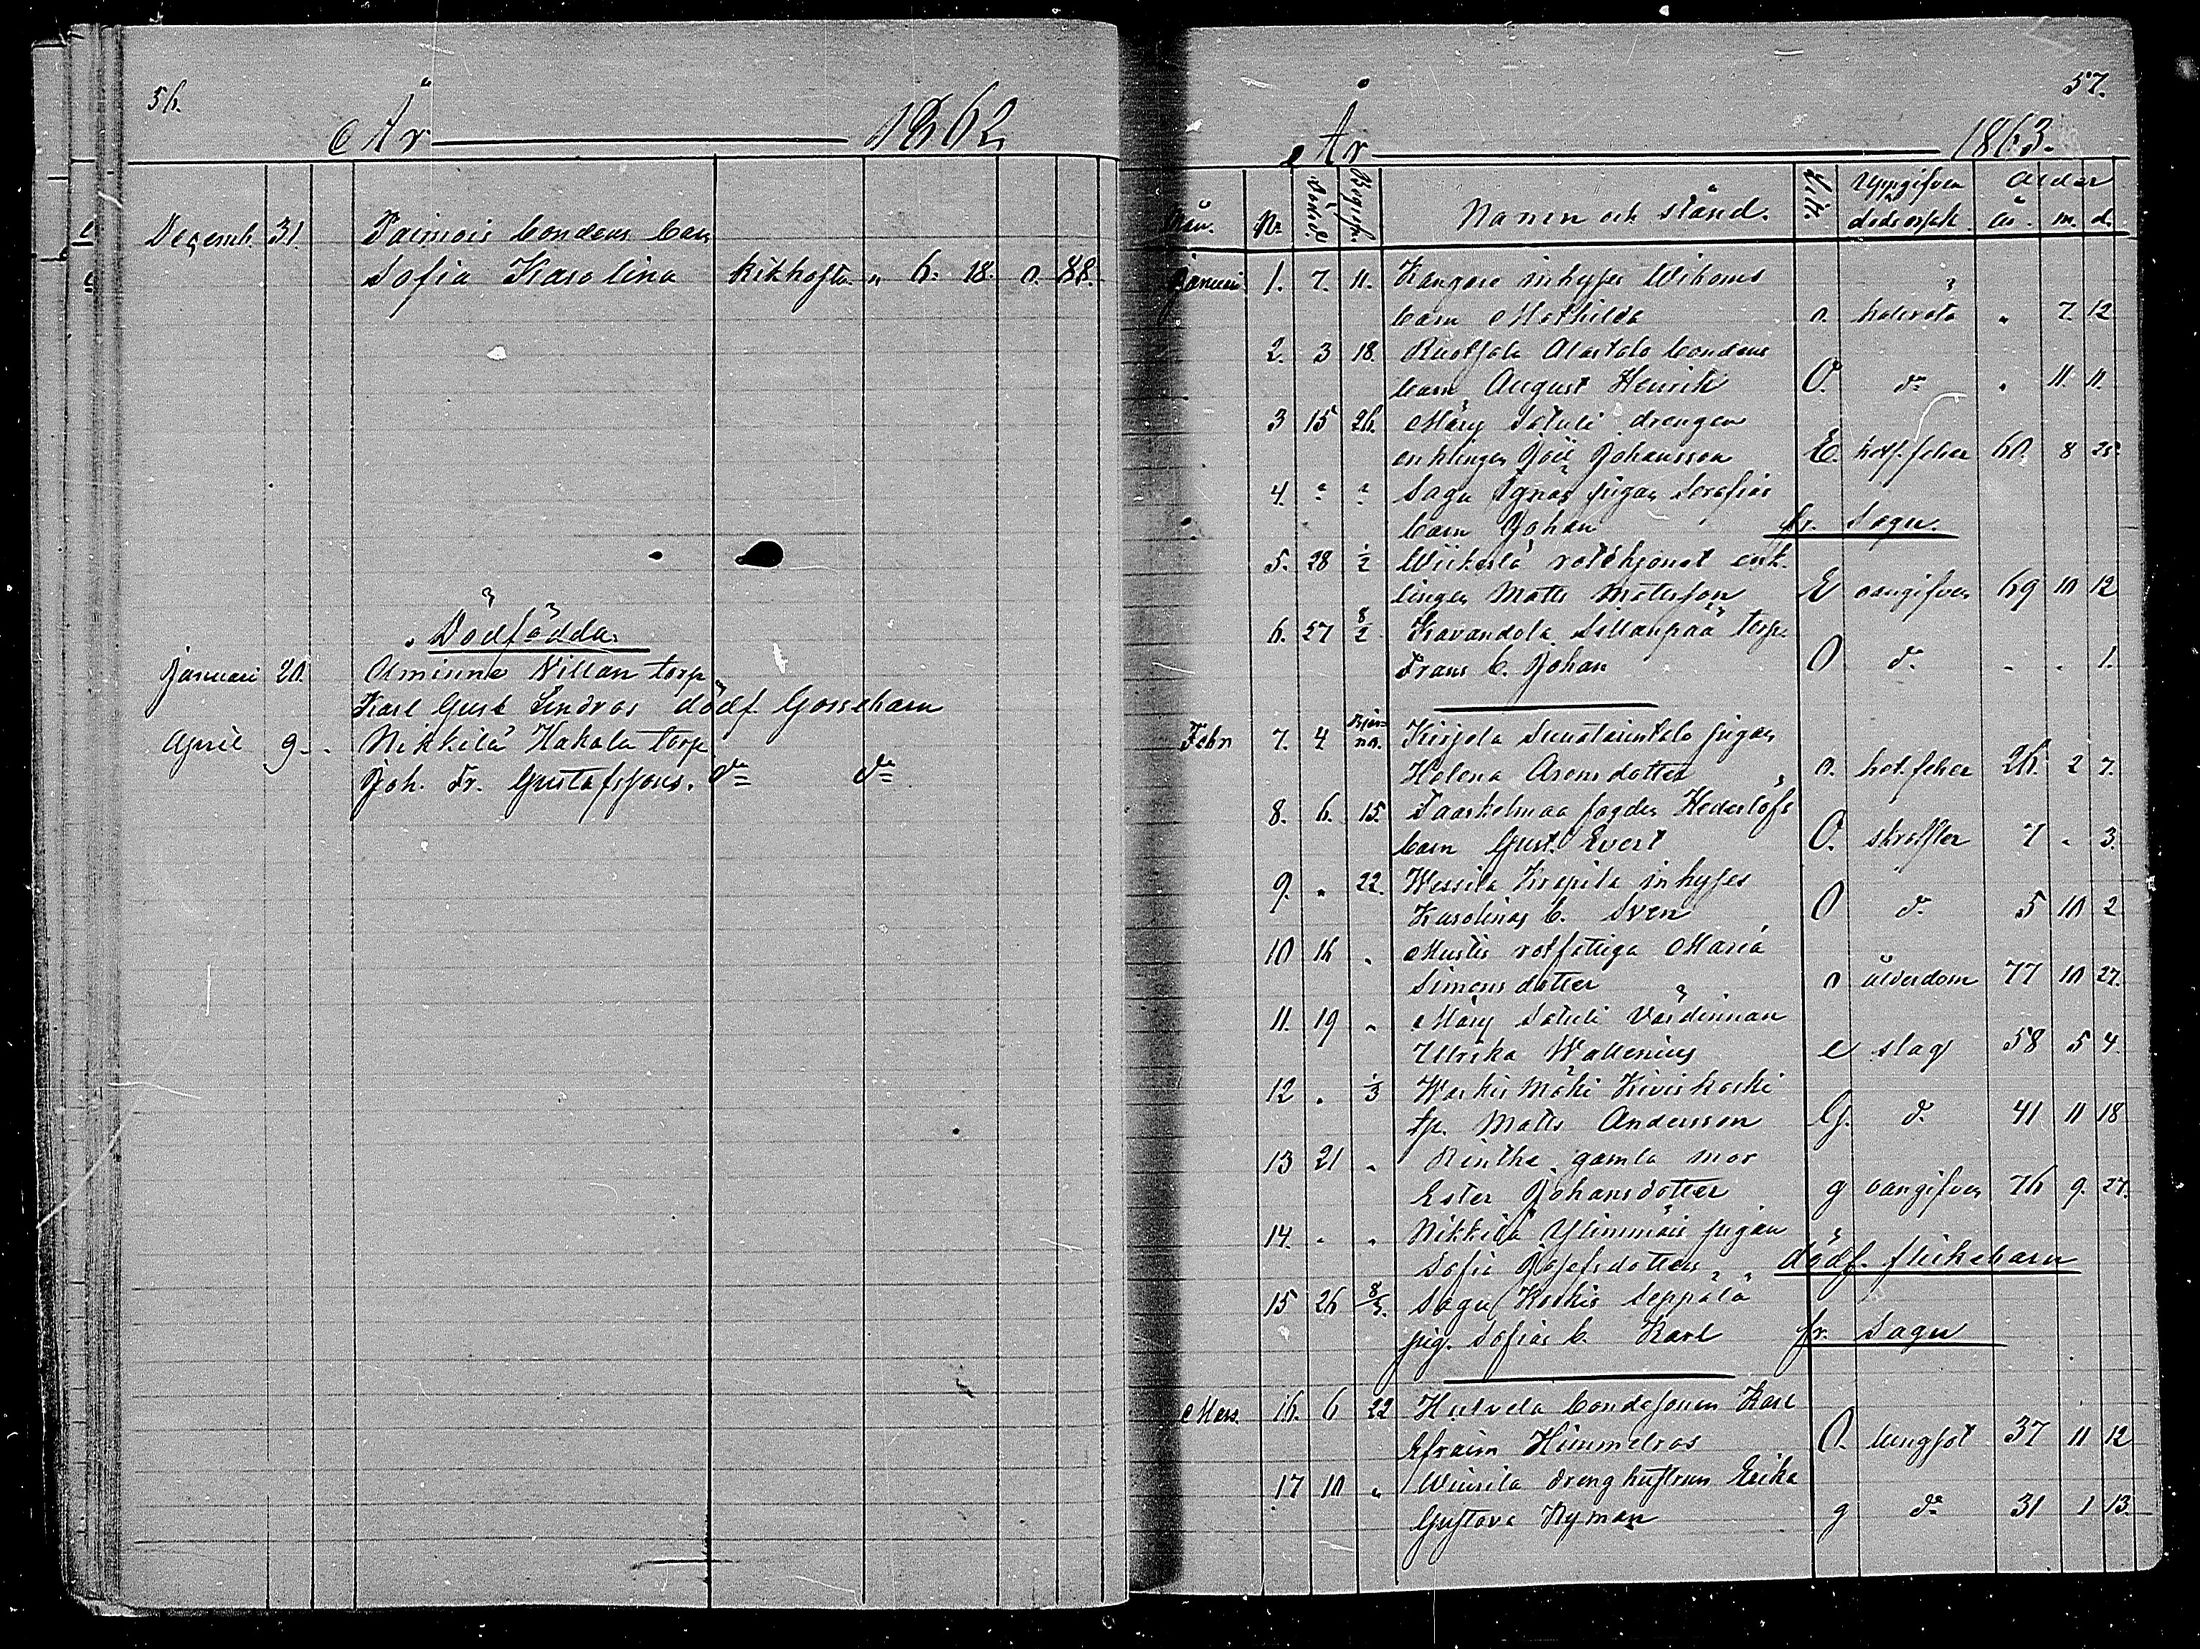 56.
År 1862
Decemb. 31. Paimois bondens barn
Sofia Karolina kikhosta " 6. 18. o. 88.
Dödfödda
Januari 20. Åminne Nillan torp.
Karl Gust Lindros dödf. Gossebarn
April 9. Nikkilä Hakala torp.
Joh. Fr. Gustafssons. do do
57.
År 1863.
Mån. No Död d. Begrafn. Namn och stånd. Litt. Uppgifven Ålder
dödsorsak år. m. d.
Januari 1. 7. 11. Kangare inhyses Wihoms
barn Mathilda o. halsröta " 7. 12
2. 3 18. Ruotsala Alastalo bondens
barn August Henrik O. do " 11. 11.
3 15 26. Märy Satuli drengen
enklingen Joh. Johansson E. hetf. feber 60. 8 25
4. " " Sagu Ignas pigan Serafias
barn Johan fr. Sagu.
5. 28 1/2 Wiikerlä rotehjonet enk-
lingen Matts Mattsson E oangifven 69 10 12
6. 27 8/2 Kavandola Sillanpää torp.
Frans b. Johan O do - - 1.
Febr 7. 4 Kirjola pigan
Helena Arensdotter o. het. feber 26. 2 7.
8. 6. 15. Taarkelmaa fogden Hederlöfs
barn Gust. Evert O. skrofler 7 " 3.
9. " 22. Wessila Krapila inhyses
Karolinas b. Sven O do 5 10 2
10 16 " Mustis rotfattiga Maria
Simonsdotter o ålderdom 77 10 27.
11. 19 " Märy Satuli Värdinnan
Ulrika Wallenius e slag 58 5 4.
12 " 1/3 Waskis Mäki Kiviskoski
tp. Matts Andersson G. do 41 11 18
13 21 " Rintha gamla mor
Ester Johansdotter g oangifven 76 9. 27.
14. " " Nikkilä Ylinnmäis pigan
Sofia Josefsdotters dödf. flickebarn
15 26 8/3. Sagu Koskis Seppälä
pig. Sofias b. Karl fr. Sagu
Mars 16. 6 22 Hulvela bondesonen Karl
Efraim Himmelros O. lungsot 37 11 12
17 10 " Winnila drenghustrun Erika
Gustava Nyman g do 31 1 13.